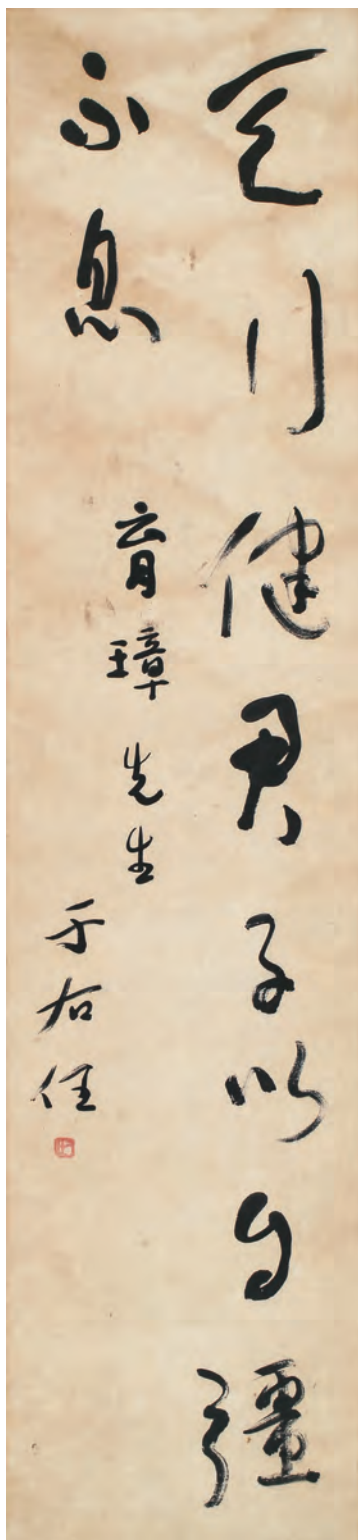 天行健君子以自彊
不息
育璋先生
于右任